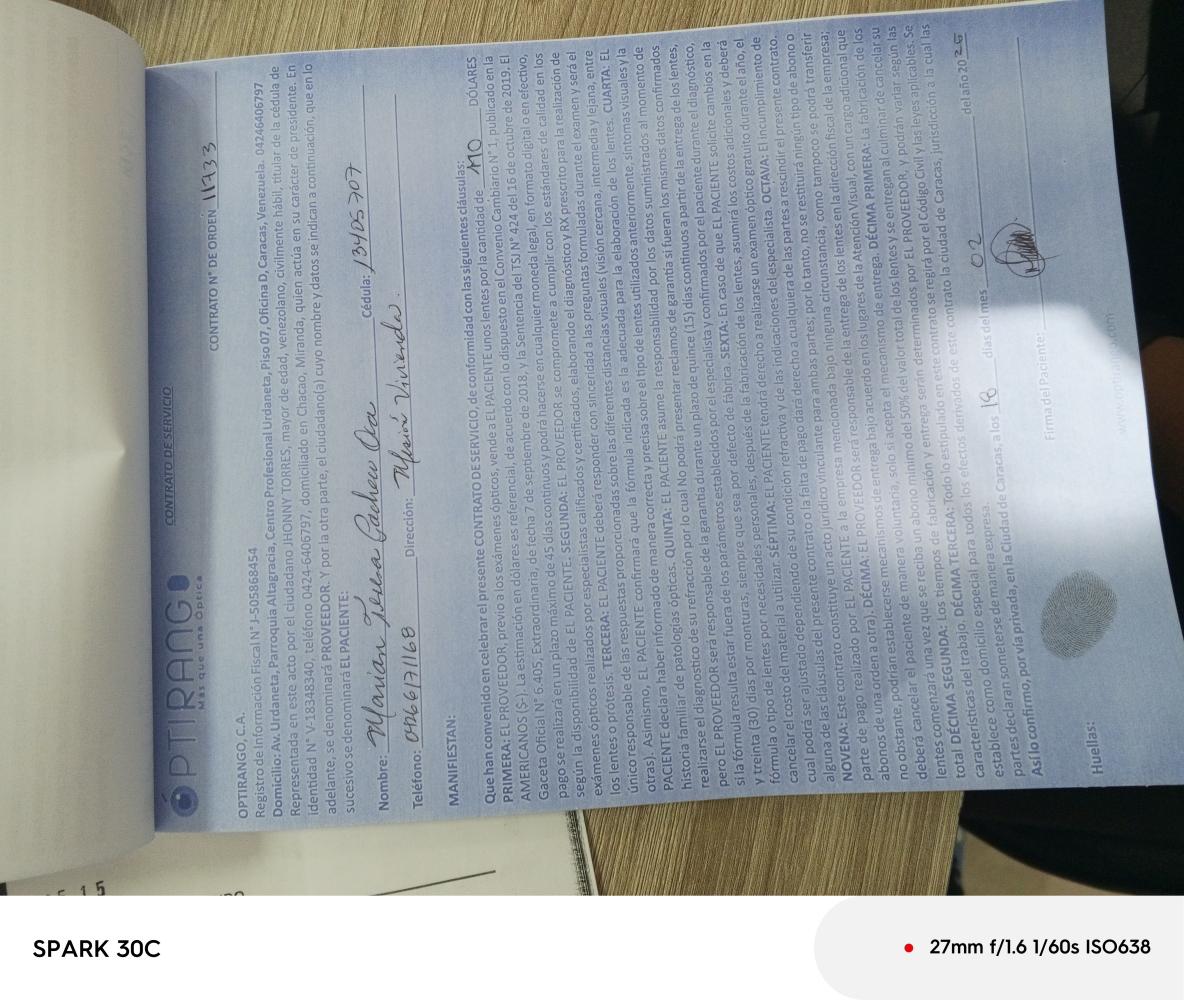 ÓPTIRANGO
Más que una Óptica
CONTRATO DE SERVICIO
CONTRATO N° DE ORDEN 11733
OPTIRANGO, C.A.
Registro de Información Fiscal N° J-505868454
Domicilio: Av. Urdaneta, Parroquia Altagracia, Centro Profesional Urdaneta, Piso 07, Oficina D, Caracas, Venezuela. 04246406797
Representada en este acto por el ciudadano JHONNY TORRES, mayor de edad, venezolano, civilmente hábil, titular de la cédula de
identidad N° V-18348340, teléfono 0424-6406797, domiciliado en Chacao, Miranda, quien actúa en su carácter de presidente. En
adelante, se denominará PROVEEDOR. Y por la otra parte, el ciudadano(a) cuyo nombre y datos se indican a continuación, que en lo
sucesivo se denominará EL PACIENTE:
Nombre: Marian Teresa Pacheco Cédula: 13405707
Teléfono: 04261711168 Dirección: Misión Vivienda.
MANIFIESTAN:
Que han convenido en celebrar el presente CONTRATO DE SERVICIO, de conformidad con las siguientes cláusulas:
PRIMERA: EL PROVEEDOR, previo a los exámenes ópticos, vende a EL PACIENTE unos lentes por la cantidad de 110 DÓLARES
AMERICANOS ($-). La estimación en dólares es referencial, de acuerdo con lo dispuesto en el Convenio Cambiario N° 1, publicado en la
Gaceta Oficial N° 6.405, Extraordinaria, de fecha 7 de septiembre de 2018, y la Sentencia del TSJ N° 424 del 16 de octubre de 2019. El
pago se realizará en un plazo máximo de 45 días continuos y podrá hacerse en cualquier moneda legal, en formato digital o en efectivo,
según la disponibilidad de EL PACIENTE. SEGUNDA: EL PROVEEDOR se compromete a cumplir con los estándares de calidad en los
exámenes ópticos realizados por especialistas calificados y certificados, elaborando el diagnóstico y RX prescrito para la realización de
los lentes o prótesis. TERCERA: EL PACIENTE deberá responder con sinceridad a las preguntas formuladas durante el examen y será el
único responsable de las respuestas proporcionadas sobre las diferentes distancias visuales (visión cercana, intermedia y lejana, entre
otras). Asimismo, EL PACIENTE confirmará que la fórmula indicada es la adecuada para la elaboración de los lentes. CUARTA: EL
PACIENTE declara haber informado de manera correcta y precisa sobre el tipo de lentes utilizados anteriormente, síntomas visuales y la
historia familiar de patologías ópticas. QUINTA: EL PACIENTE asume la responsabilidad por los datos suministrados al momento de
realizarse el diagnostico de su refracción por lo cual No podrá presentar reclamos de garantía si fueran los mismos datos confirmados
pero EL PROVEEDOR será responsable de la garantía durante un plazo de quince (15) días continuos a partir de la entrega de los lentes,
si la fórmula resulta estar fuera de los parámetros establecidos por el especialista y confirmados por el paciente durante el diagnóstico,
y treinta (30) días por monturas, siempre que sea por defecto de fábrica. SEXTA: En caso de que EL PACIENTE solicite cambios en la
fórmula o tipo de lentes por necesidades personales, después de la fabricación de los lentes, asumirá los costos adicionales y deberá
cancelar el costo del material a utilizar. SÉPTIMA: EL PACIENTE tendrá derecho a realizarse un examen óptico gratuito durante el año, el
cual podrá ser ajustado dependiendo de su condición refractiva y de las indicaciones del especialista. OCTAVA: El incumplimiento de
alguna de las cláusulas del presente contrato o la falta de pago dará derecho a cualquiera de las partes a rescindir el presente contrato.
NOVENA: Este contrato constituye un acto jurídico vinculante para ambas partes; por lo tanto, no se restituirá ningún tipo de abono o
parte de pago realizado por EL PACIENTE a la empresa mencionada bajo ninguna circunstancia, como tampoco se podrá transferir
abonos de una orden a otra). DÉCIMA: EL PROVEEDOR será responsable de la entrega de los lentes en la dirección fiscal de la empresa;
no obstante, podrían establecerse mecanismos de entrega bajo acuerdo en los lugares de la Atención Visual, con un cargo adicional que
deberá cancelar el paciente de manera voluntaria, solo si acepta el mecanismo de entrega. DÉCIMA PRIMERA: La fabricación de los
lentes comenzará una vez que se reciba un abono mínimo del 50% del valor total de los lentes y se entregan al culminar de cancelar su
total DÉCIMA SEGUNDA: Los tiempos de fabricación y entrega serán determinados por EL PROVEEDOR, y podrán variar según las
características del trabajo. DÉCIMA TERCERA: Todo lo estipulado en este contrato se regirá por el Código Civil y las leyes aplicables. Se
establece como domicilio especial para todos los efectos derivados de este contrato la ciudad de Caracas, jurisdicción a la cual las
partes declaran someterse de manera expresa.
Así lo confirmo, por vía privada, en la Ciudad de Caracas, a los 18 días del mes 02 del año 2025
Firma del Paciente:
Huellas:
SPARK 30C
27mm f/1.6 1/60s ISO638